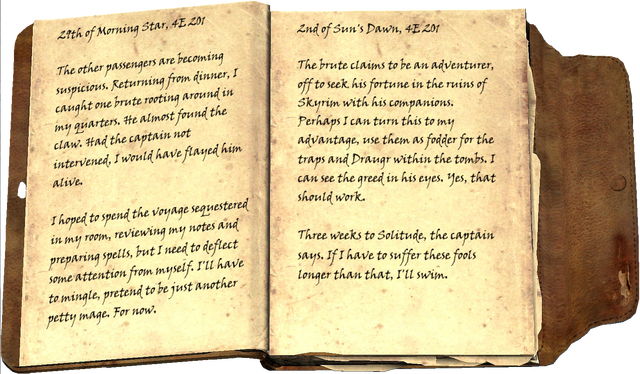 29th of Morning Star, 4E 201
The other passengers are becoming
suspicious. Returning from dinner, I
caught one brute rooting around in
my quarters. He almost found the
claw. Had the captain not
intervened, I would have flayed him
alive.
I hoped to spend the voyage sequestered
in my room, reviewing my notes and
preparing spells, but I need to deflect
some attention from myself. I'll have
to mingle, pretend to be just another
petty mage. For now.
2nd of Sun's Dawn, 4E 201
The brute claims to be an adventurer,
off to seek his fortune in the ruins of
Skyrim with his companions.
Perhaps I can turn this to my
advantage, use them as fodder for the
traps and Draugr within the tombs. I
can see the greed in his eyes. Yes, that
should work.
Three weeks to Solitude, the captain
says. If I have to suffer these fools
longer than that, I'll swim.